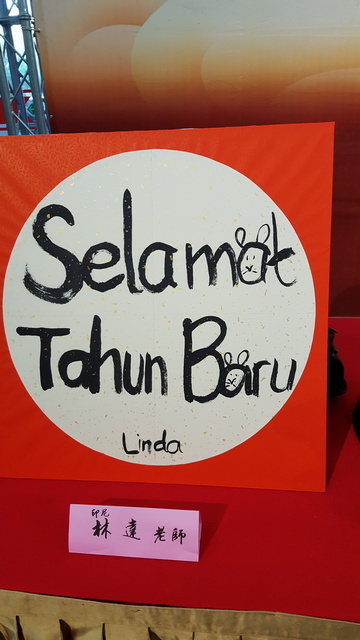 Selamat
Tahun Baru
Linda
印尼
林達老師